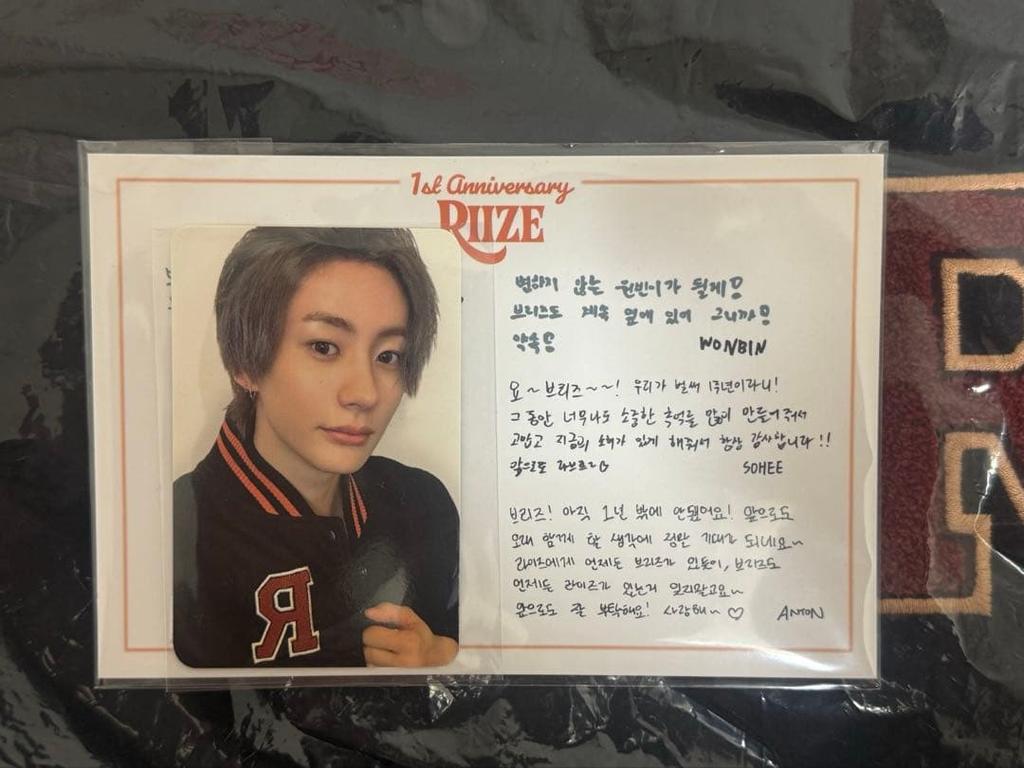 1st Anniversary
RIIZE
변하지 않는 원빈이가 될게!
브리즈도 계속 옆에 있어 그니까!
약속!
WONBIN
요~브리즈~~! 우리가 벌써 1주년이라니!
그동안 너무나도 소중한 추억을 많이 만들어줘서
고맙고 지금의 소희가 있게 해줘서 항상 감사합니다!!
앞으로도 라브뜨~♡
SOHEE
브리즈! 아직 1년 밖에 안됐어요! 앞으로도
오래 함께 할 생각에 정말 기대가 되네요~
라이즈에게 언제든 브리즈가 있듯이, 브리즈도
언제든 라이즈가 있는거 잊지말고요~
앞으로도 잘 부탁해요! 사랑해~ ♡
ANTON
R